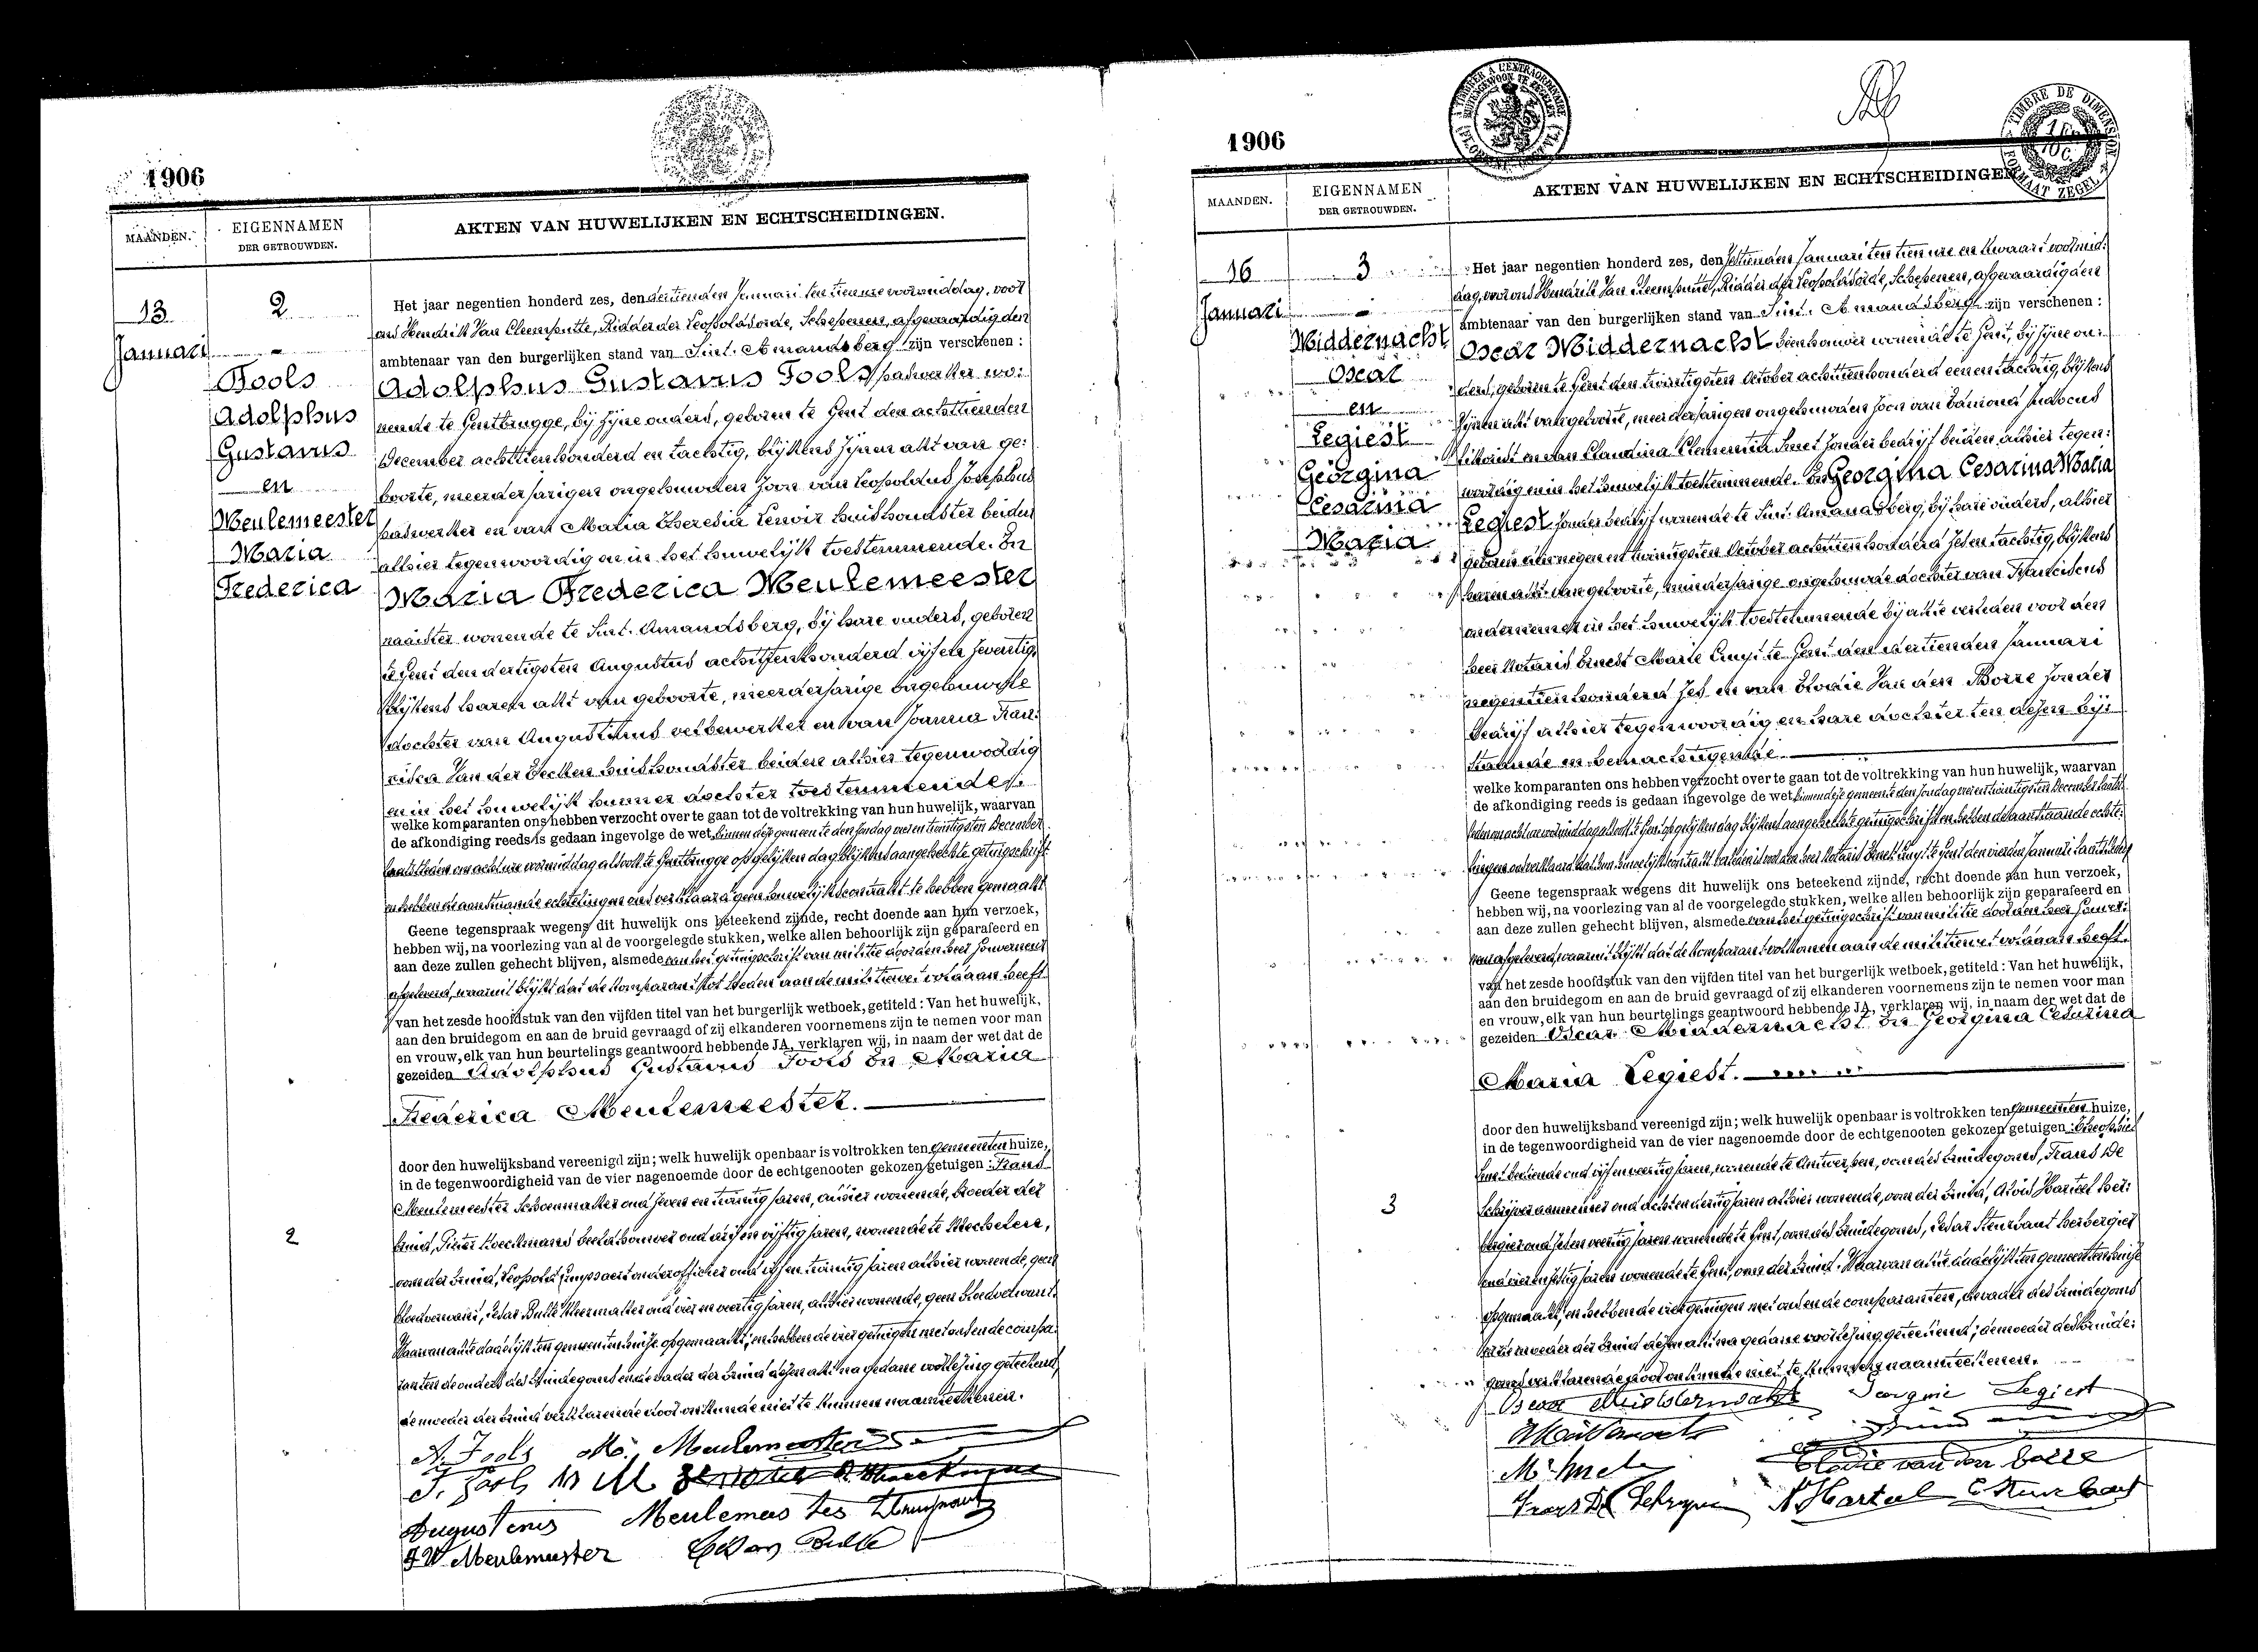 1906
MAANDEN.
EIGENNAMEN
DER GETROUWDEN.
AKTEN VAN HUWELIJKEN EN ECHTSCHEIDINGEN.
13
Januari
2
-
Fools
Adolphus
Gustavus
en
Meulemeester
Maria
Frederica
Het jaar negentien honderd zes, den dertienden Januari ten tien ure voormiddag, voor
ons Hendrik Van Cleemputte, Ridder der Leopoldsorde, Schepenen, afgevaardigden
ambtenaar van den burgerlijken stand van Sint-Amandsberg zijn verschenen:
Adolphus Gustavus Fools, wo:
nende te Gentbrugge, bij zijne ouders, geboren te Gent den achttienden
December achttienhonderd en tachtig, blijkens zijnen akt van ge:
boorte, meerderjarigen ongehuwden zoon van Leopoldus Josephus
en van Maria Theresia Lenoir huishoudster beiden
alhier tegenwoordig en in het huwelijk toestemmende. En
Maria Frederica Meulemeester
naaister wonende te Sint-Amandsberg, bij hare ouders, geboren
te Gent den dertigsten Augustus achttienhonderd vijf en zeventig,
blijkens haren akt van geboorte, meerderjarige ongehuwde
dochter van Augustinus en van Joanna Fran:
cisca Van der Eecken huishoudster beiden alhier tegenwoordig
en in het huwelijk hunner dochter toestemmende.
welke komparanten ons hebben verzocht over te gaan tot de voltrekking van hun huwelijk, waarvan
de afkondiging reeds is gedaan ingevolge de wet binnen deze gemeente den zondag vier en twintigsten December
laatstleden om acht ure voormiddag alsook te Gentbrugge op gelijken dag blijkens aangehechte getuigschrift
en hebben de aanstaande echtelingen ons verklaard geen huwelijkscontrakt te hebben gemaakt
Geene tegenspraak wegens dit huwelijk ons beteekend zijnde, recht doende aan hun verzoek,
hebben wij, na voorlezing van al de voorgelegde stukken, welke allen behoorlijk zijn geparafeerd en
aan deze zullen gehecht blijven, alsmede van het getuigschrift van militie door den heer Gouverneur
afgeleverd, waaruit blijkt dat de komparant tot heden aan de militiewet voldaan heeft
van het zesde hoofdstuk van den vijfden titel van het burgerlijk wetboek, getiteld: Van het huwelijk,
aan den bruidegom en aan de bruid gevraagd of zij elkanderen voornemens zijn te nemen voor man
en vrouw, elk van hun beurtelings geantwoord hebbende JA, verklaren wij, in naam der wet dat de
gezeiden Adolphus Gustavus Fools en Maria
Frederica Meulemeester.
door den huwelijksband vereenigd zijn; welk huwelijk openbaar is voltrokken ten gemeenten huize,
in de tegenwoordigheid van de vier nagenoemde door de echtgenooten gekozen getuigen: Frans
Meulemeester schoenmaker oud zeven en twintig jaren, alhier wonende, broeder der
bruid, Pieter beeldhouwer oud vijftig jaren, wonende te Mechelen,
oom der bruid, Leopold onderofficier oud vijf en twintig jaren alhier wonende, geen
bloedverwant, Cesar Bulte kleermaker oud vier en veertig jaren, alhier wonende, geen bloedverwant.
Waarvan akte dadelijk ten gemeentenhuize opgemaakt; en hebben de vier getuigen met ons en de compa:
ranten de ouders des bruidegoms en de vader der bruid dezen akt na gedane voorlezing geteekend,
de moeder der bruid verklarende door onkunde niet te kunnen naamteekenen.
2
A. Fools M. Meulemeester
Augustinus Meulemeester
Meulemeester Cesar Bulte
1906
MAANDEN.
EIGENNAMEN
DER GETROUWDEN.
AKTEN VAN HUWELIJKEN EN ECHTSCHEIDINGEN
16
Januari
3
-
Middernacht
Oscar
en
Legiest
Georgina
Cesarina
Maria
Het jaar negentien honderd zes, den zestienden Januari ten tien ure en kwaart voormid:
dag, voor ons Hendrik Van Cleemputte, Ridder der Leopoldsorde, Schepenen, afgevaardigden
ambtenaar van den burgerlijken stand van Sint-Amandsberg zijn verschenen:
Oscar Middernacht wonende te Gent, bij zijne ou:
ders, geboren te Gent den twintigsten October achttienhonderd een en tachtig, blijkens
zijnen akt van geboorte, meerderjarigen ongehuwden zoon van Edmond Judocus
en van Claudina Clementia Smet zonder bedrijf beiden alhier tegen:
woordig en in het huwelijk toestemmende. En Georgina Cesarina Maria
Legiest zonder bedrijf wonende te Sint-Amandsberg, bij hare ouders, alhier
geboren den negen en twintigsten October achttienhonderd zes en tachtig, blijkens
haren akt van geboorte, minderjarige ongehuwde dochter van Franciscus
ondernemer in het huwelijk toestemmende bij akte verleden voor den
heer Notaris Ernest Marie te Gent den dertienden Januari
negentienhonderd zes en van Elodie Van den Borre zonder
bedrijf alhier tegenwoordig en hare dochter ten dezen bij:
staande en bemachtigende.
welke komparanten ons hebben verzocht over te gaan tot de voltrekking van hun huwelijk, waarvan
de afkondiging reeds is gedaan ingevolge de wet binnen deze gemeente den zondag vier en twintigsten December laatst
leden om acht ure voormiddag alsook te Gent op gelijken dag blijkens aangehechte getuigschrift en hebben de aanstaande echte:
lingen ons verklaard dat hun huwelijkscontrakt verleden is voor den heer Notaris Ernest te Gent den vierden Januari laatstleden
Geene tegenspraak wegens dit huwelijk ons beteekend zijnde, recht doende aan hun verzoek,
hebben wij, na voorlezing van al de voorgelegde stukken, welke allen behoorlijk zijn geparafeerd en
aan deze zullen gehecht blijven, alsmede van het getuigschrift van militie door den heer Gouver:
neur afgeleverd, waaruit blijkt dat de komparant volkomen aan de militiewet voldaan heeft.
van het zesde hoofdstuk van den vijfden titel van het burgerlijk wetboek, getiteld: Van het huwelijk,
aan den bruidegom en aan de bruid gevraagd of zij elkanderen voornemens zijn te nemen voor man
en vrouw, elk van hun beurtelings geantwoord hebbende JA, verklaren wij, in naam der wet dat de
gezeiden Oscar Middernacht en Georgina Cesarina
Maria Legiest.
door den huwelijksband vereenigd zijn; welk huwelijk openbaar is voltrokken ten gemeenten huize,
in de tegenwoordigheid van de vier nagenoemde door de echtgenooten gekozen getuigen: Theophiel
Smet bediende oud vijf en veertig jaren, wonende te Antwerpen, oom des bruidegoms, Frans De
Schrijver aannemer oud acht en dertig jaren alhier wonende, oom der bruid, Aloïs Harteel her:
bergier oud zes en veertig jaren wonende te Gent, oom des bruidegoms, Cesar Steurbaut herbergier
oud vier en vijftig jaren wonende te Gent, oom der bruid. Waarvan akte dadelijk ten gemeentenhuize
opgemaakt, en hebben de vier getuigen met ons en de comparanten, de vader des bruidegoms
en de moeder der bruid dezen akt na gedane voorlezing geteekend; de moeder des bruide:
goms verklarende door onkunde niet te kunnen naamteekenen.
3
Oscar Middernacht Georgine Legiest
Elodie van den borre
Frans De Schryver A Harteel C Steurbaut